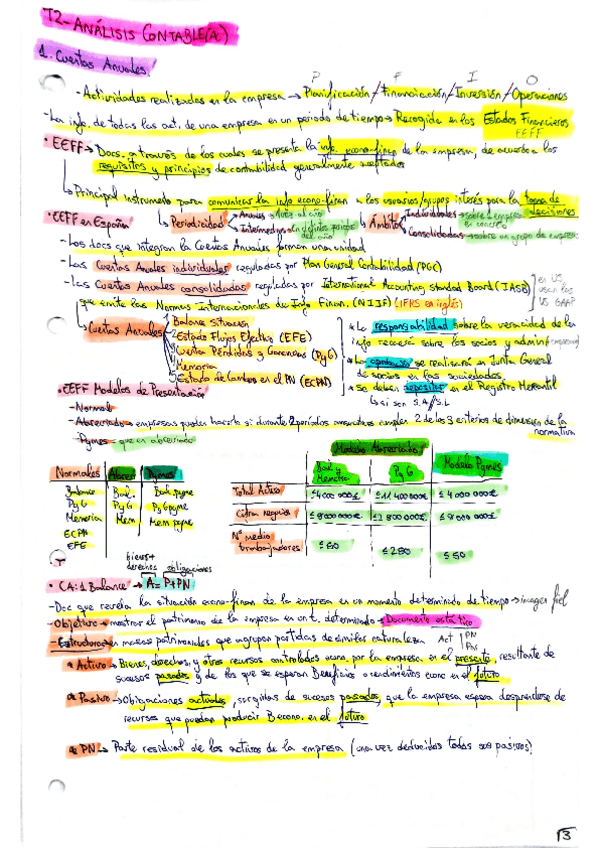 T2- ANÁLISIS CONTABLE(A)
1. Cuentas Anuales
P F I O
- Actividades realizadas en la empresa → Planificación / Financiación / Inversión / Operaciones
- La info. de todas las act. de una empresa en un periodo de tiempo → Recogida en los Estados Financieros
EEFF
• EEFF → Docs. a través de los cuales se presenta la info. econo-finac de la empresa, de acuerdo a los
requisitos y principios de contabilidad generalmente aceptados
↳ Principal instrumento para comunicar la info econo-finan a los usuarios/grupos interés para la toma de
decisiones
• EEFF en España
↳ Periodicidad
Anuales →
Intermedios →
Ámbito
Individuales → sobre 1 empresa
en concreto
Consolidadas → sobre un grupo de empresas
- Los docs que integran la Cuentas Anuales forman una unidad
- Las Cuentas Anuales individuales reguladas por Plan General Contabilidad (PGC)
- Las Cuentas Anuales consolidadas reguladas por International Accounting Standard Board (IASB)
que emite las Normas Internacionales de Info Finan. (NIIF) (IFRS en inglés)
en US
usan las
US GAAP
↳ Cuentas Anuales
Balance Situación
Estado Flujos Efectivo (EFE)
Cuenta Pérdidas y Ganancias (PyG)
Memoria
Estado de Cambios en el PN (ECPN)
* La responsabilidad sobre la veracidad de la
info recaerá sobre los socios y admin
* La aprobación se realizará en Junta General
de socios en las sociedades
* Se deben depositar en el Registro Mercantil
↳ si son S.A/S.L
• EEFF Modelos de Presentación
- Normal
- Abreviado → empresas pueden hacerlo si durante 2 periodos consecutivos cumplen 2 de los 3 criterios de dimensión de la
normativa
- Pymes → que en abreviado
Normales | Abrev | Pymes
Balance | Bal. | Bal. pyme
PyG | PyG | PyG pyme
Memoria | Mem | Mem pyme
ECPN
EFE
Modelo Abreviado
Bal y
Memoria | PyG | Modelo Pymes
Total Activo | ≤4 000 000€ | ≤11 400 000€ | ≤4 000 000€
Cifra negocios | ≤8 000 000€ | ≤2 800 000€ | ≤8 000 000€
Nº medio
trabajadores | ≤50 | ≤250 | ≤50
bienes+
derechos obligaciones
• CA: 1 Balance → A = P+PN
- Doc que revela la situación econo-finan de la empresa en un momento determinado de tiempo → imagen fiel
- Objetivo → mostrar el patrimonio de la empresa en un t. determinado → Documento estático
- Estructurado en masas patrimoniales que agrupa partidas de similar naturaleza Act | PN
Pas
* Activo → Bienes, derechos y otros recursos controlados econo. por la empresa en el presente, resultante de
sucesos pasados y de los que se esperan Beneficios o rendimientos econo en el futuro
* Pasivo → Obligaciones actuales, surgidas de sucesos pasados, que la empresa espera desprenderse de
recursos que puedan producir B econo. en el futuro
* PN → Parte residual de los activos de la empresa (una vez deducidos todos sus pasivos)
3